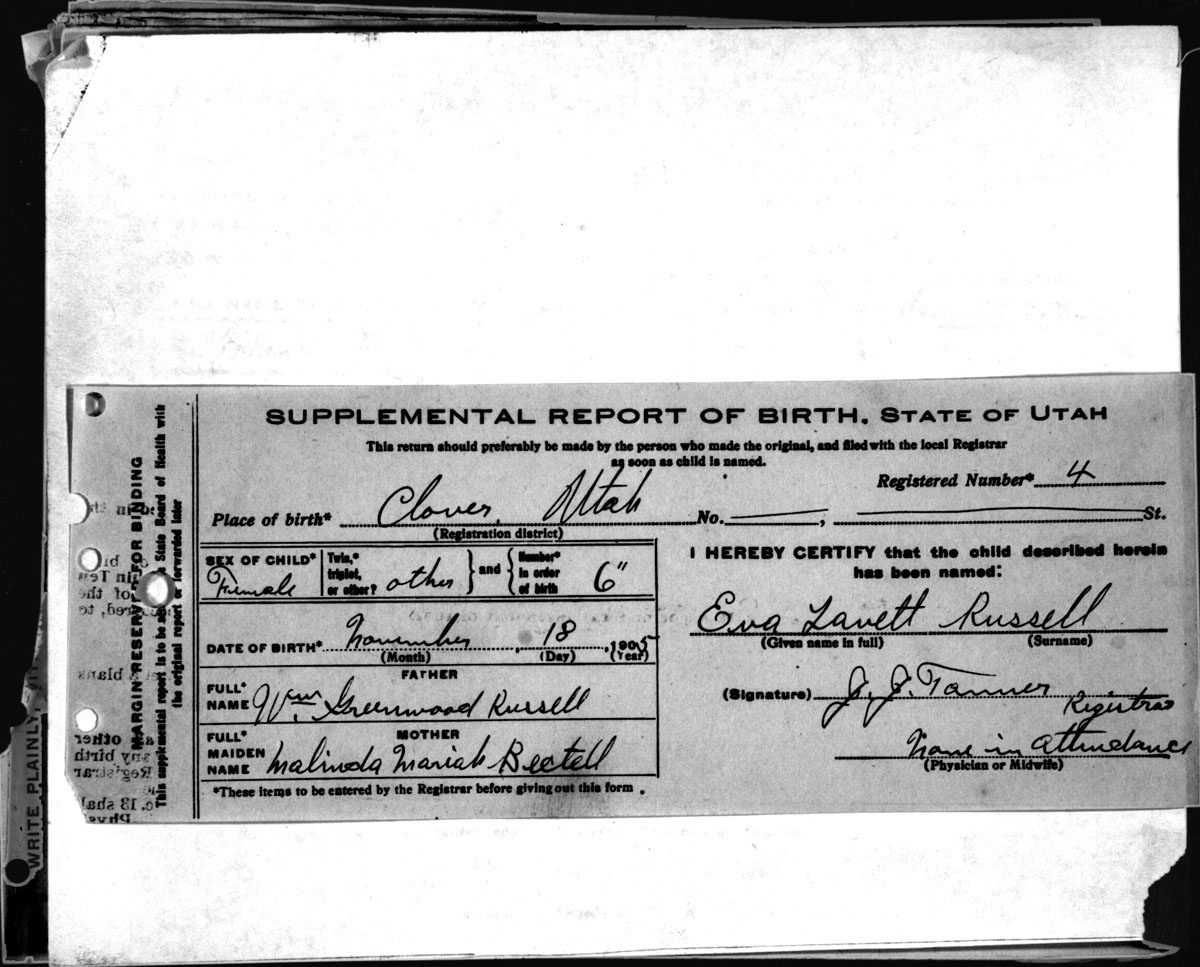 SUPPLEMENTAL REPORT OF BIRTH, STATE OF UTAH
This return should preferably be made by the person who made the original, and filed with the local Registrar
as soon as child is named.
Registered Number* 4
Place of birth* Clover, Utah No. , St.
(Registration district)
SEX OF CHILD* Female
Twin,* triplet, or other? other } and { Number* in order of birth 6"
DATE OF BIRTH* November 18, 1905
(Month) (Day) (Year)
FATHER
FULL* NAME Wm Greenwood Russell
MOTHER
FULL* MAIDEN NAME Malinda Mariah Bectell
*These items to be entered by the Registrar before giving out this form.
I HEREBY CERTIFY that the child described herein
has been named:
Eva Lavett Russell
(Given name in full) (Surname)
(Signature) J. J. Tanner
Registrar
None in Attendance
(Physician or Midwife)
MARGIN RESERVED FOR BINDING
This supplemental report is to be State Board of Health with
the original report or forwarded later
WRITE PLAINLY,